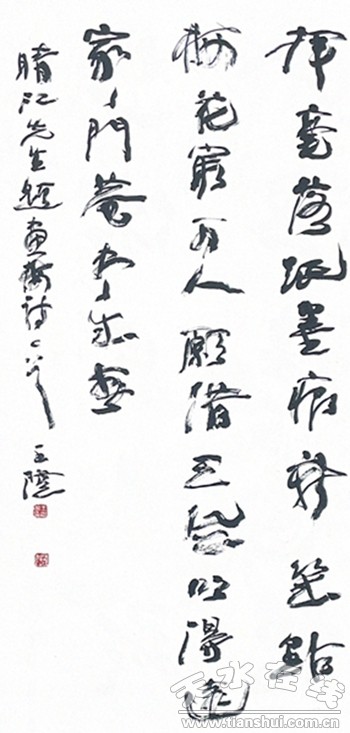 揮毫落紙墨痕新幾點
梅花最可人願借天風吹得遠
家〻門巷盡成春
晴江先生題畫梅詩一首 王
天水在线
www.tianshui.com.cn